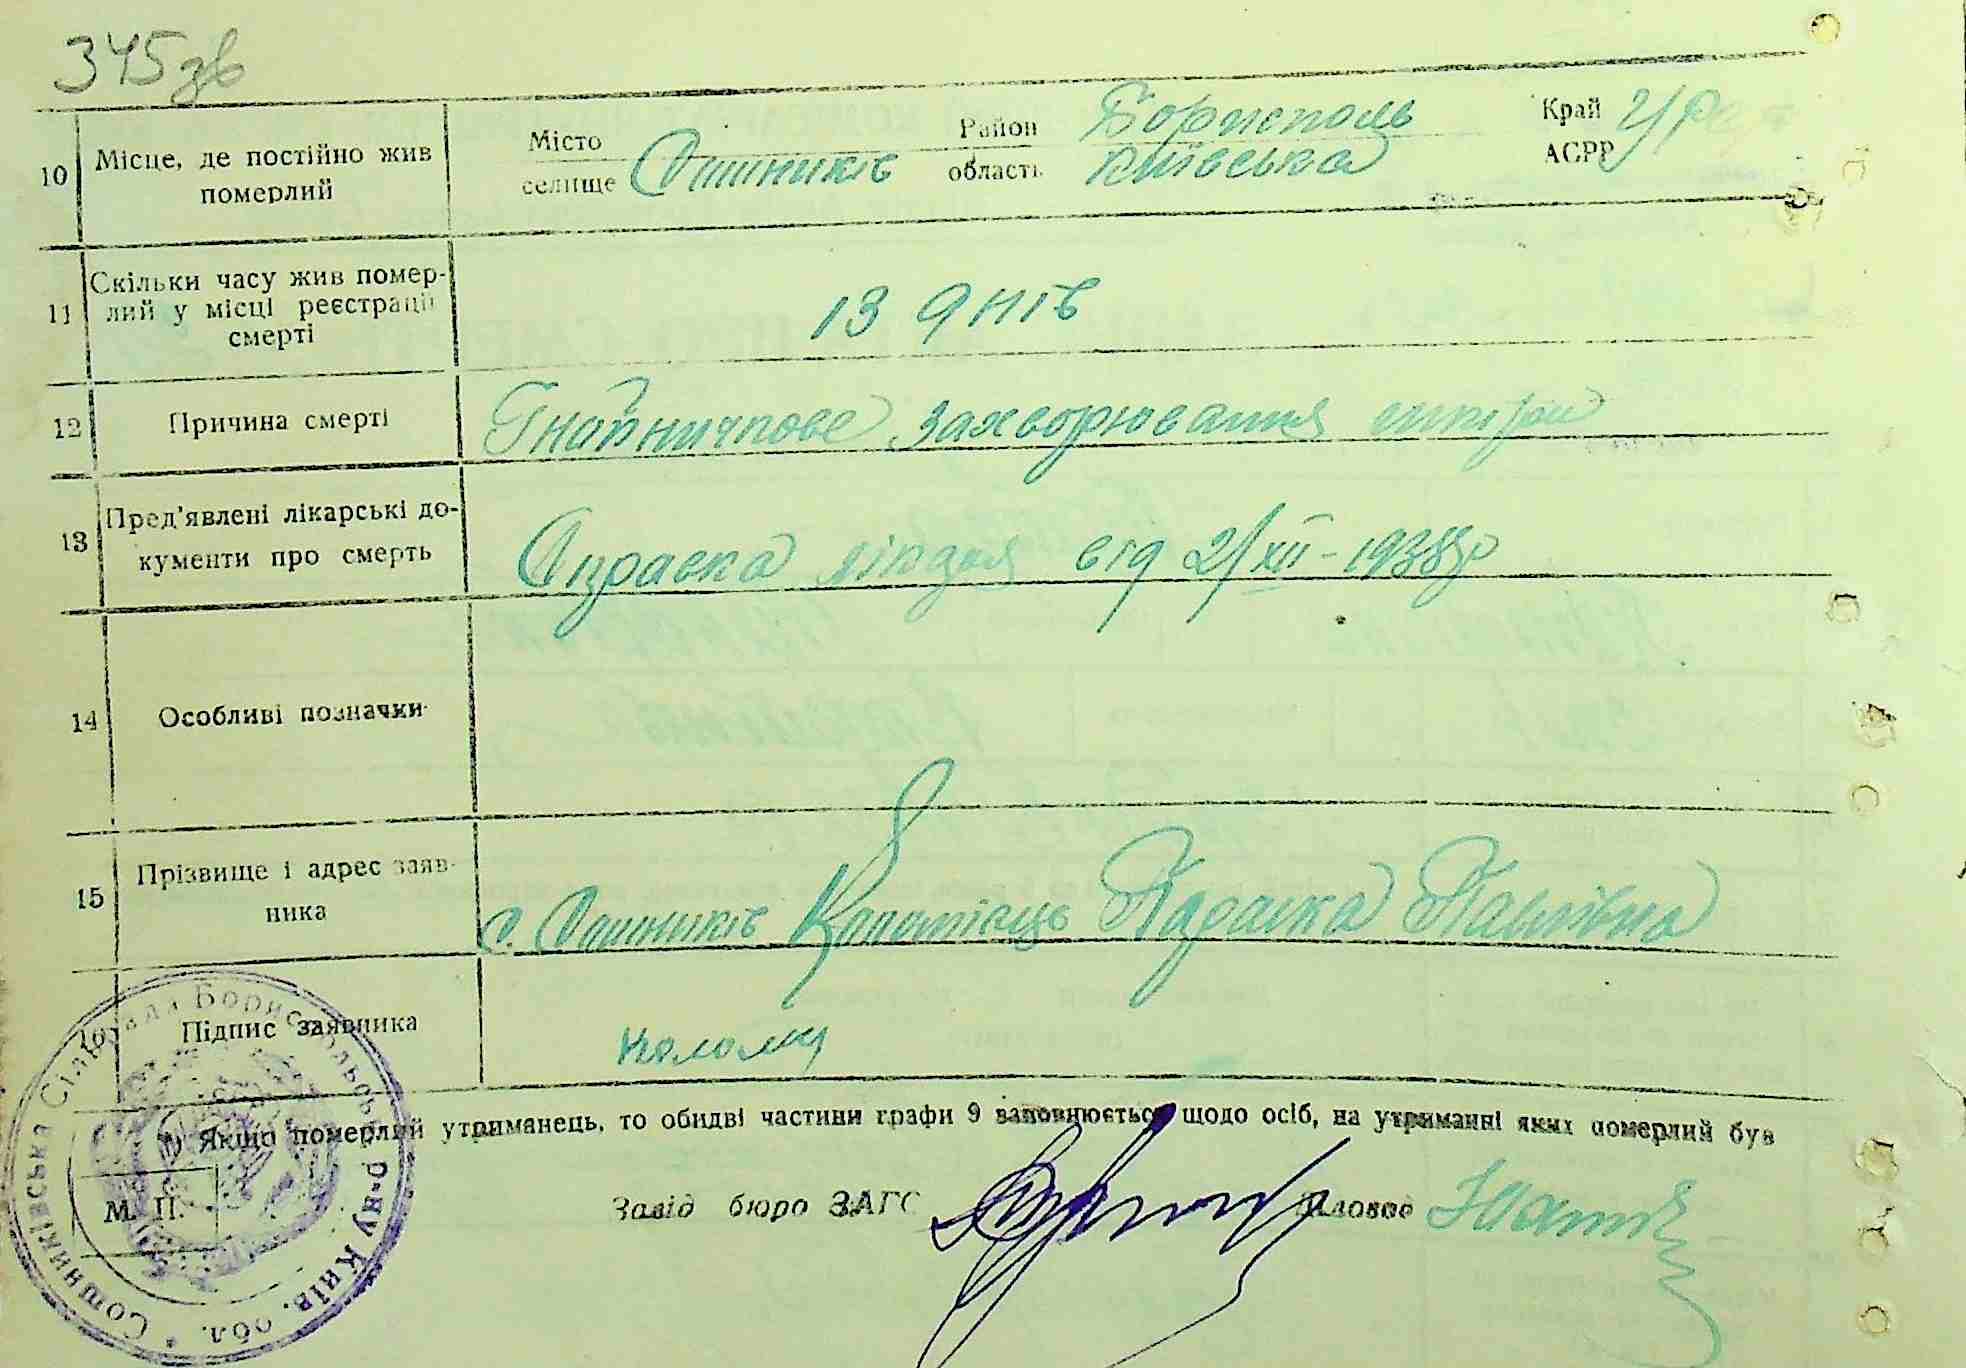 345зв
10 Місце, де постійно жив померлий Місто селище Сошників Район Бориспол​ь область Київська Край АСРР УРСР
11 Скільки часу жив померлий у місці реєстрації смерті 13 днів
12 Причина смерті Гнойничкове захворювання шкіри
13 Пред'явлені лікарські документи про смерть Справка лікаря від 2/XII-1938 р
14 Особливі позначки
15 Прізвище і адрес заявника с. Сошників Коломієць Параска Павлівна
16 Підпис заявника Коломи
1) Якщо померлий утриманець, то обидві частини графи 9 заповнюється щодо осіб, на утриманні яких померлий був
М. П.
Завід бюро ЗАГС Діловод
Сошниківська Сільрада Бориспольськ. р-ну Київ. обл.